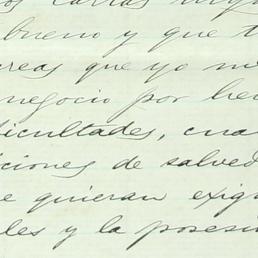 os cartas
bueno y que t
creas que yo
negocio por
ficultades, cua
iciones de salved
e quieran exig
les y la posesi